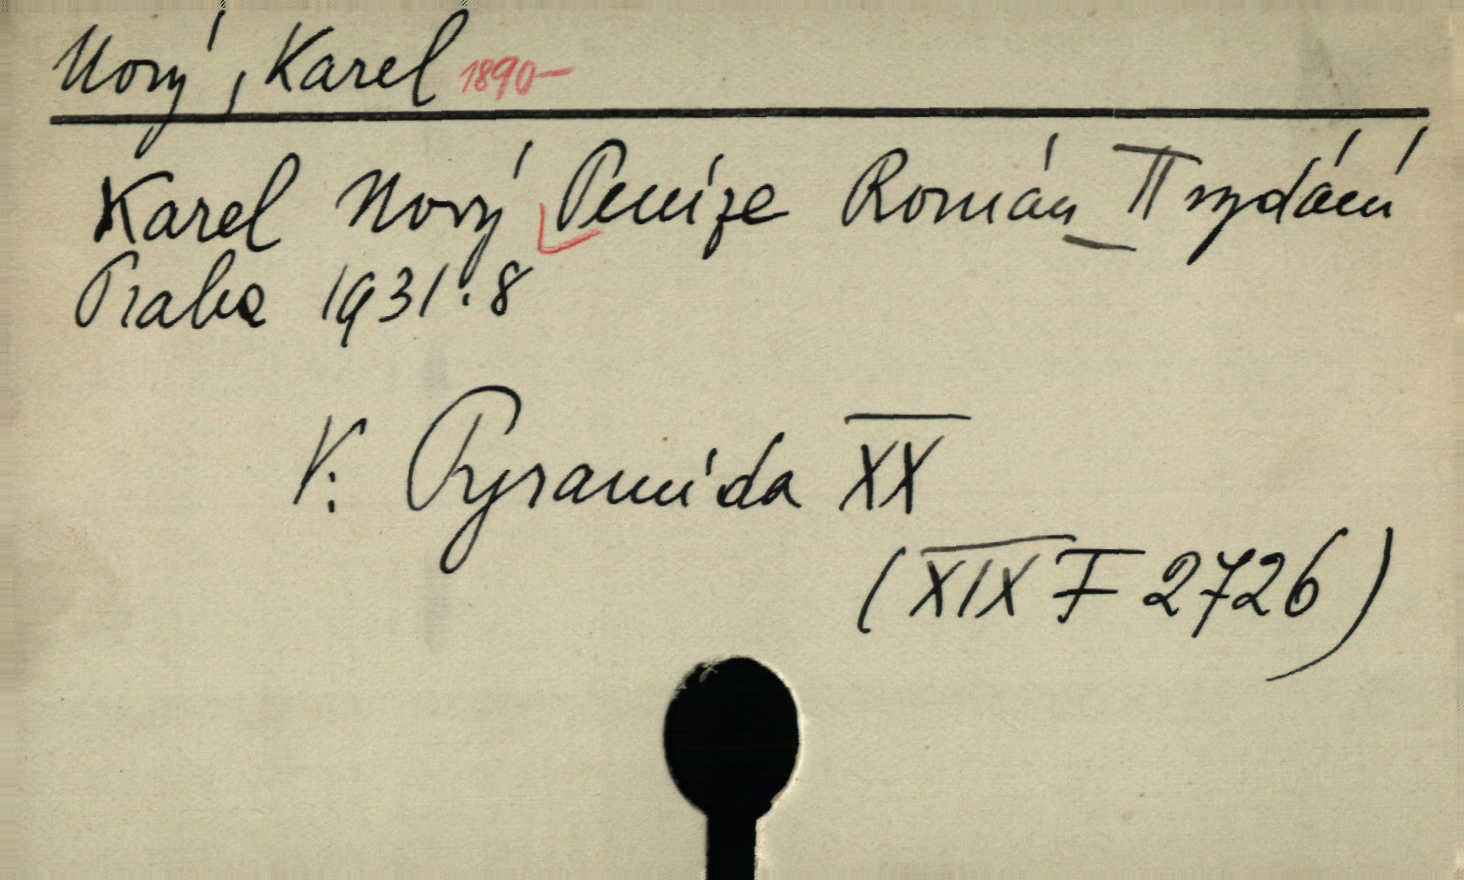 Nový, Karel 1890-
Karel Nový Peníze Román II vydání
Praha 1931. 8
V: Pyramida XX
(XIX F 2726)